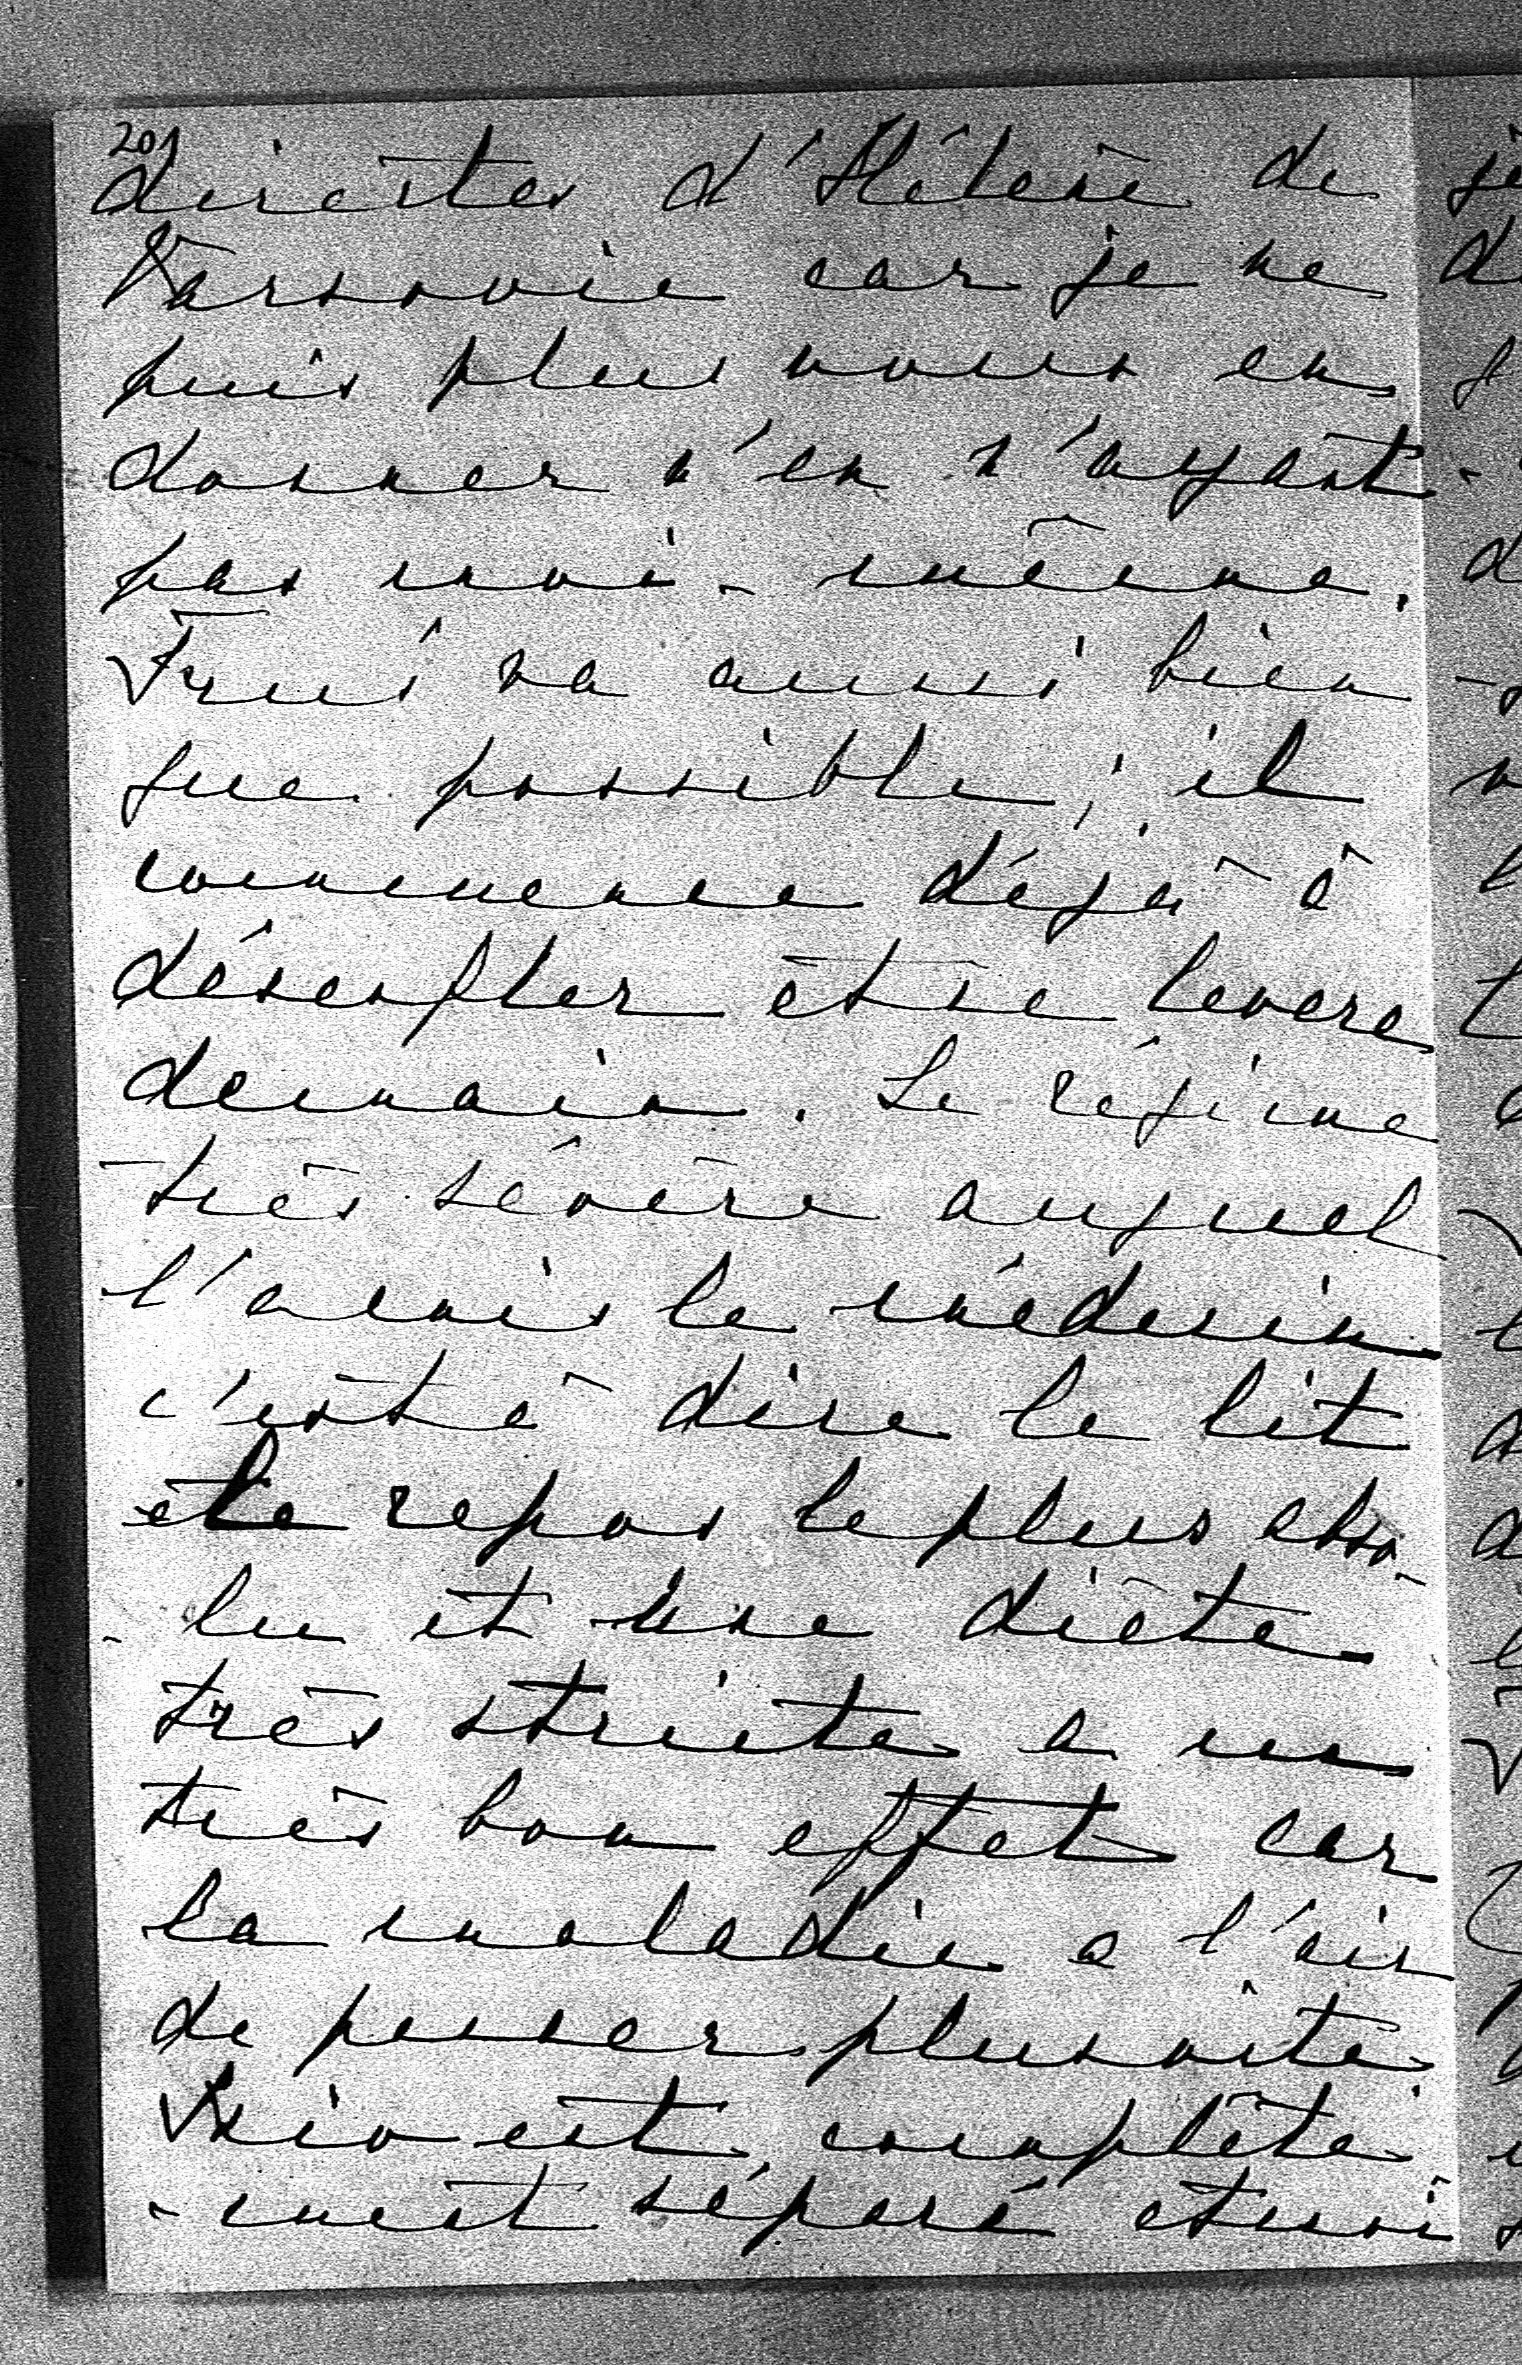 201
directes d'Hélène de
Varsovie car je ne
puis plus vous en
donner n'en n'ayant
pas moi-même.
va aussi bien
que possible; il
commence déjà à
désenfler et se levera
demain. Le régime
très sévère auquel
l'a mis le médecin
c'est à dire le lit
et le repos le plus abso
-lu et une diète
très stricte a un
très bon effet car
la maladie a l'air
de passer plus vite.
est complète
-ment séparé et moi